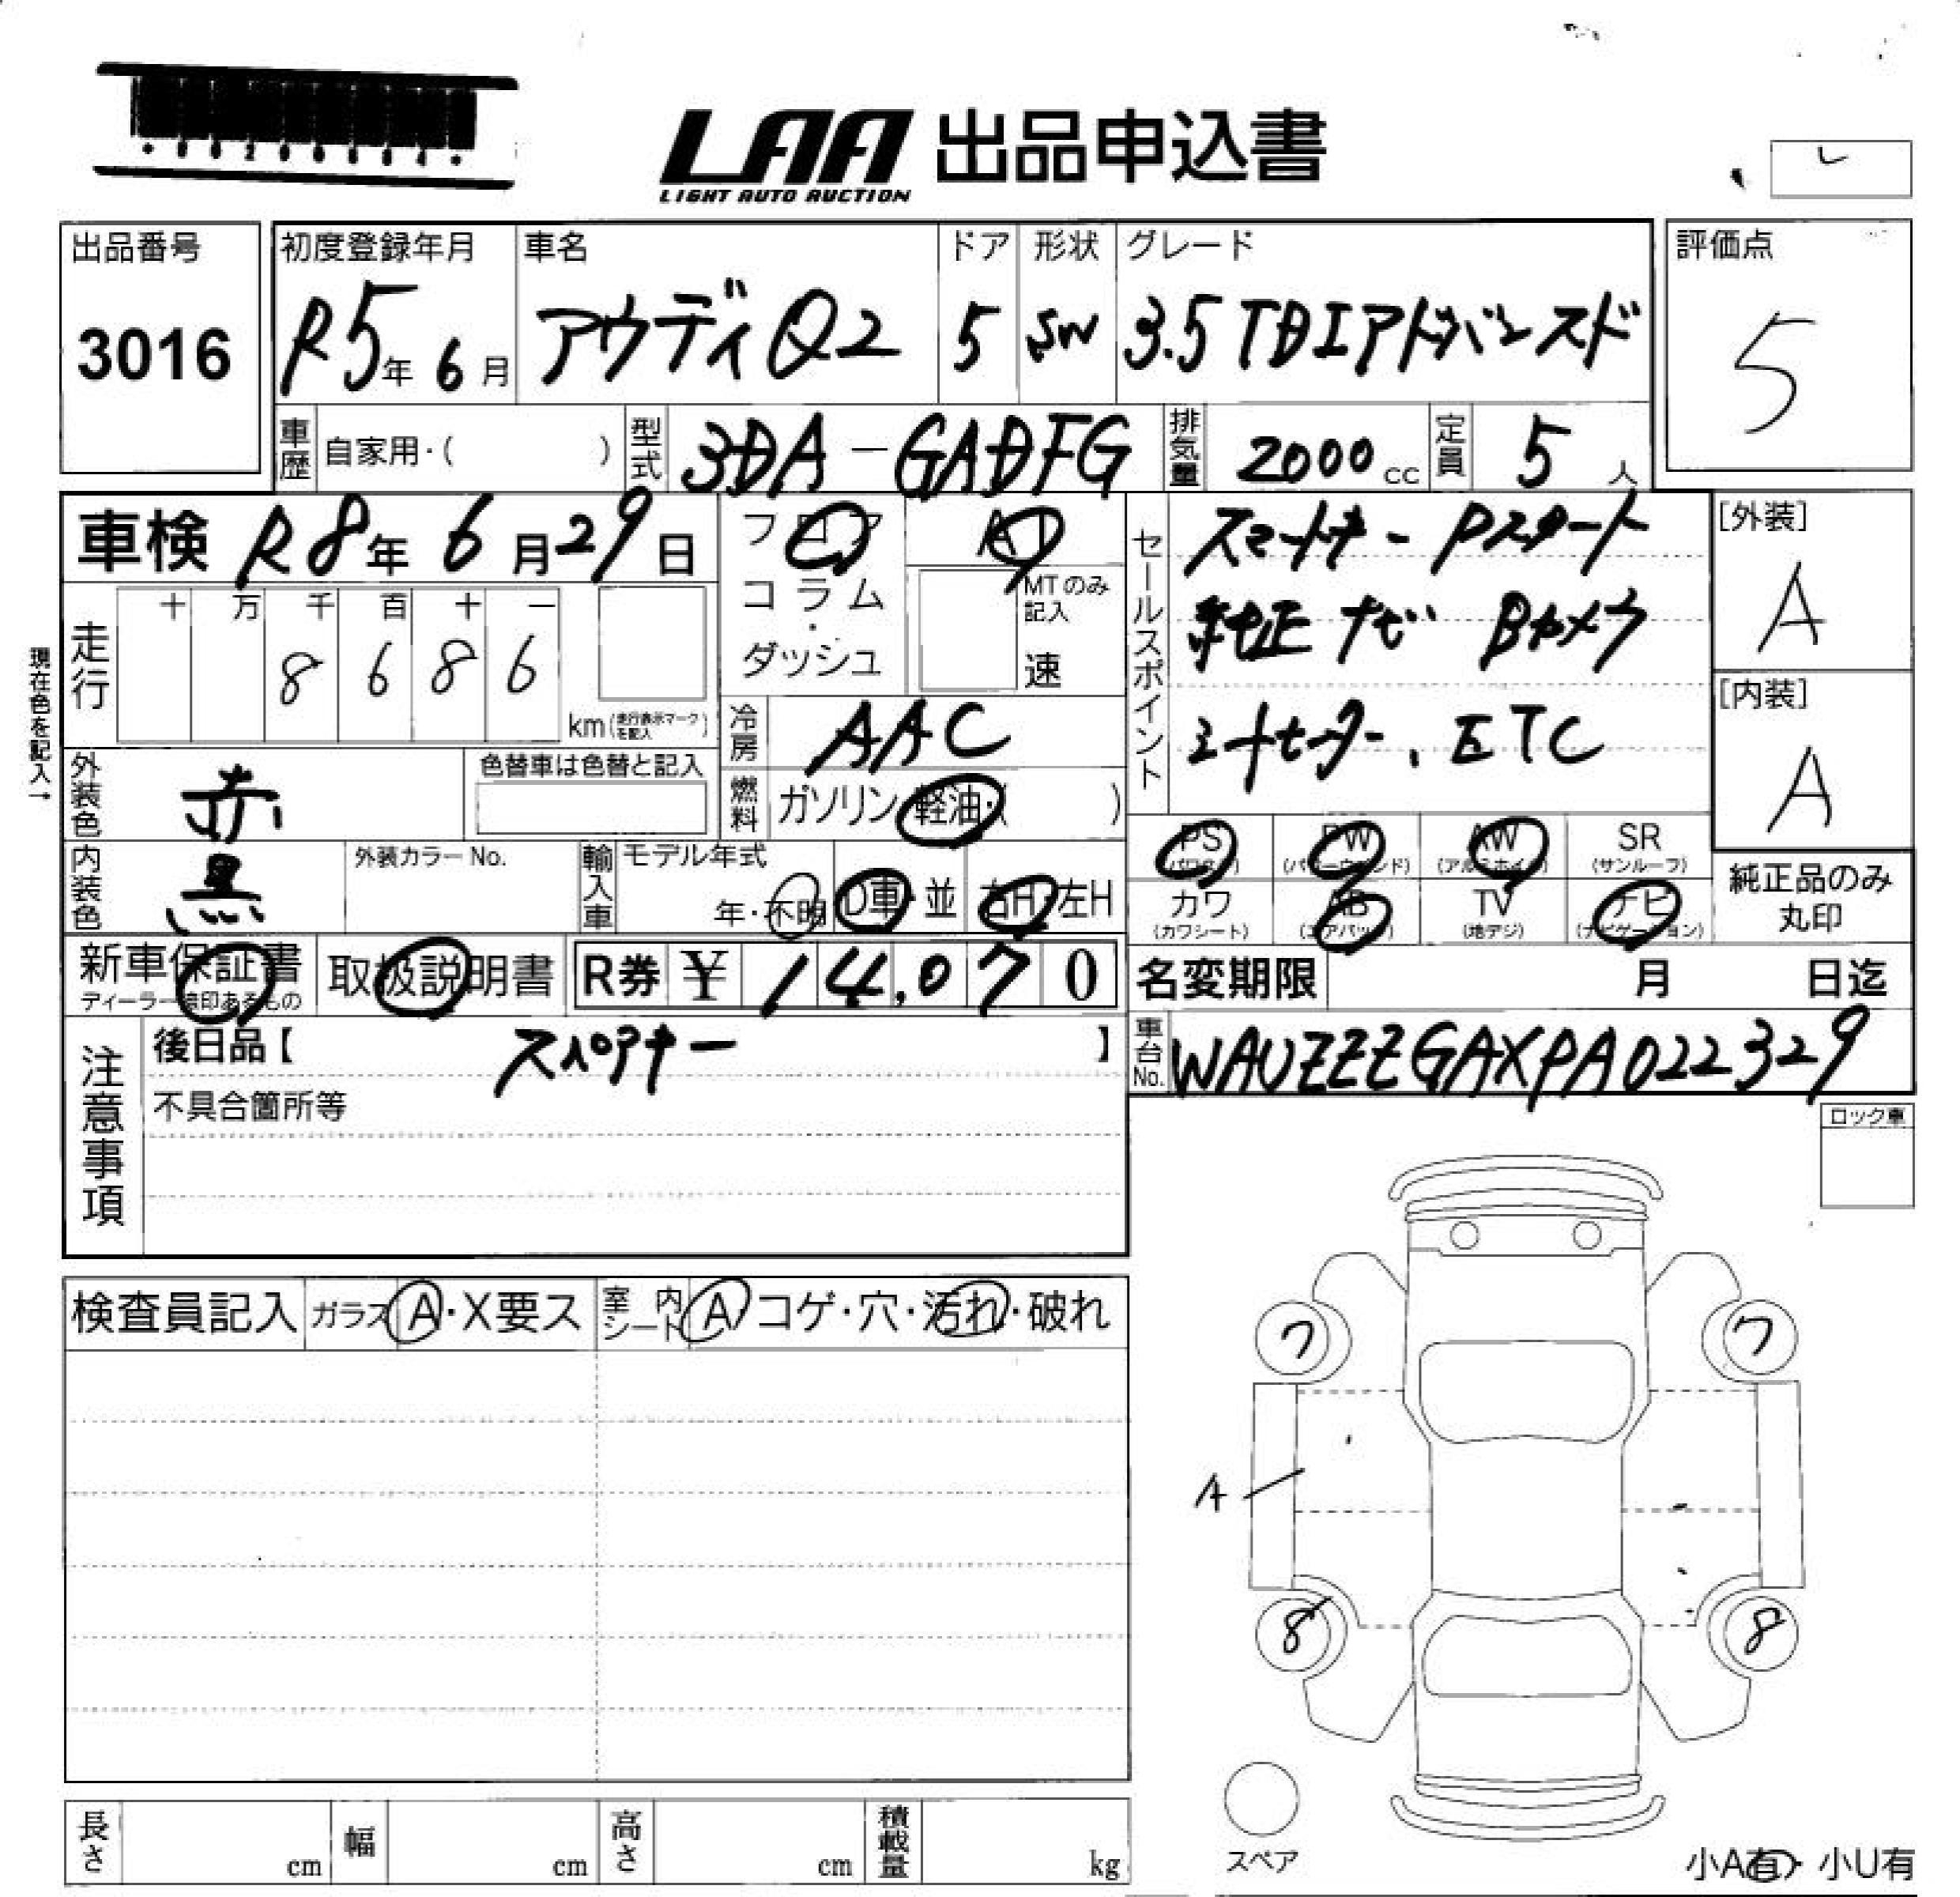 LAA 出品申込書
LIGHT AUTO AUCTION
出品番号
3016
初度登録年月
R5年 6月
車名
アウディQ2
ドア
5
形状
SW
グレード
3.5 TDIアドバンスド
評価点
5
車歴 自家用・( )
型式 3DA-GADFG
排気量 2000 cc
定員 5 人
車検 R8年 6月29日
フロア
コラム
・
ダッシュ
AT
MTのみ記入
速
セールスポイント
スマートキー Pスタート
純正ナビ Bカメラ
シートヒーター、ETC
[外装]
A
[内装]
A
現在色を記入→
走行
十 万 千 百 十 一
8 6 8 6
km(走行表示マークを記入)
冷房 AAC
燃料 ガソリン・軽油・( )
外装色 赤
色替車は色替と記入
内装色 黒
外装カラーNo.
輸入車 モデル年式
年・不明
D車・並
右H・左H
PS
(パワステ)
PW
(パワーウインド)
AW
(アルミホイル)
SR
(サンルーフ)
カワ
(カワシート)
AB
(エアバッグ)
TV
(地デジ)
ナビ
(ナビゲーション)
純正品のみ
丸印
新車保証書
ディーラー捺印あるもの
取扱説明書
R券 ¥ 14,070
名変期限 月 日迄
車台No. WAUZZZGAXPA022329
注意事項
後日品【 スペアキー 】
不具合箇所等
ロック車
検査員記入
ガラス A・X要ス
室内シート A コゲ・穴・汚れ・破れ
7 7
A
8 8
スペア
小A有・小U有
長さ cm
幅 cm
高さ cm
積載量 kg